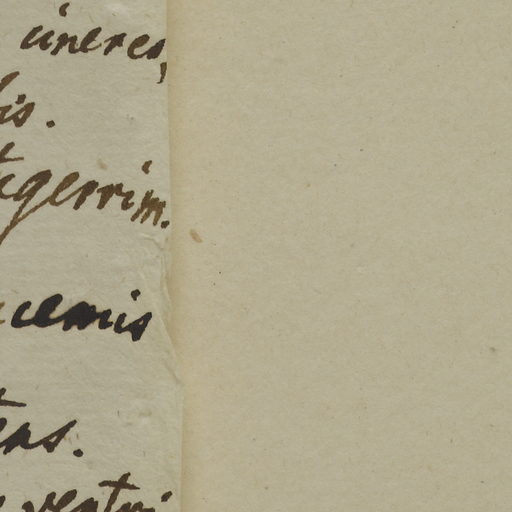 cineres,
is.
tegerrim.
cemis
ens.
ventri